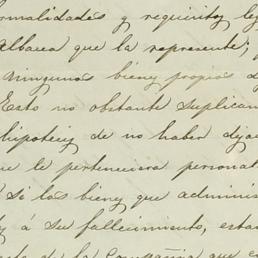 rmalidades y requisitos leg
Albacea que la represente;
ningunos bienes propios d
Esto no obstante suplican
hipotesis de no haber dejad
ue le perteneciera personal
si los bienes que adminis
á su fallecimiento, esta
de la Compañia que